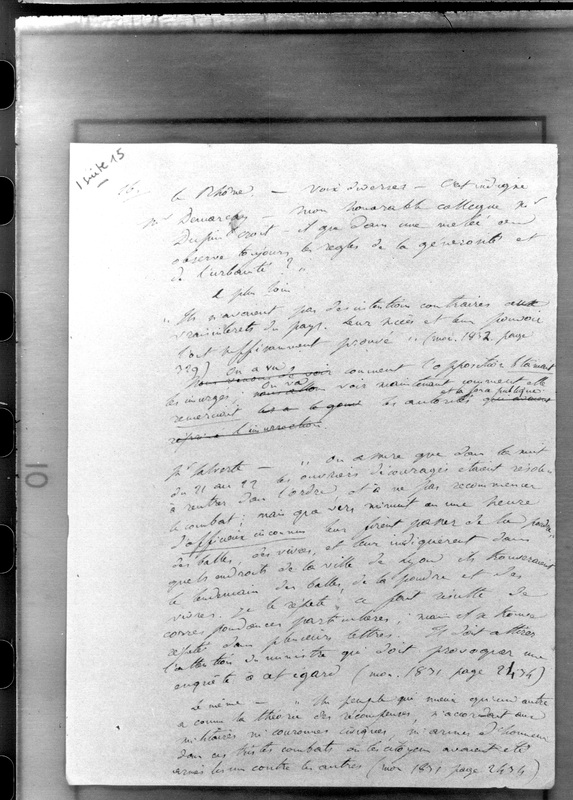 suite 15
16
le Rhône. — Voix diverses — C'est indigne
Mr Demarçay — mon honorable collègue Mr
Dupin croit-il que dans une mêlée on
observe toujours les règles de la générosité et
de l'urbanité ? "
& plus loin
" Ils n'avaient pas des intentions contraires aux
vrais intérêts du pays. Leur succès et leur pouvoir
l'ont suffisamment prouvé " (mon. 1832. page
329)
on a vu comment l'opposition
les insurgés; on va voir maintenant comment elle
les autorités et la force publique
l'insurrection
Mr Laborde — " On assure que dans la nuit
du 21 au 22 les ouvriers découragés étaient résolus
à rentrer dans l'ordre, et à ne pas recommencer
le combat; mais que vers minuit ou une heure
d'officieux inconnus leur firent passer de la poudre,
des balles, des vivres, et leur indiquèrent dans
quels endroits de la ville de Lyon ils trouveraient
le lendemain des balles, de la poudre et des
vivres. Je le répète, ce fait résulte de
correspondances particulières; mais il se trouve
répété dans plusieurs lettres. Il doit attirer
l'attention du ministre qui doit provoquer une
enquête à cet égard (mon. 1831 page 2434)
Le même — " Un peuple qui mieux qu'un autre
a connu la théorie des récompenses, n'accordait aux
militaires ni couronnes civiques, ni armes d'honneur
dans ces tristes combats où les citoyens avaient été
armés les uns contre les autres (mon 1831 page 2434)
10